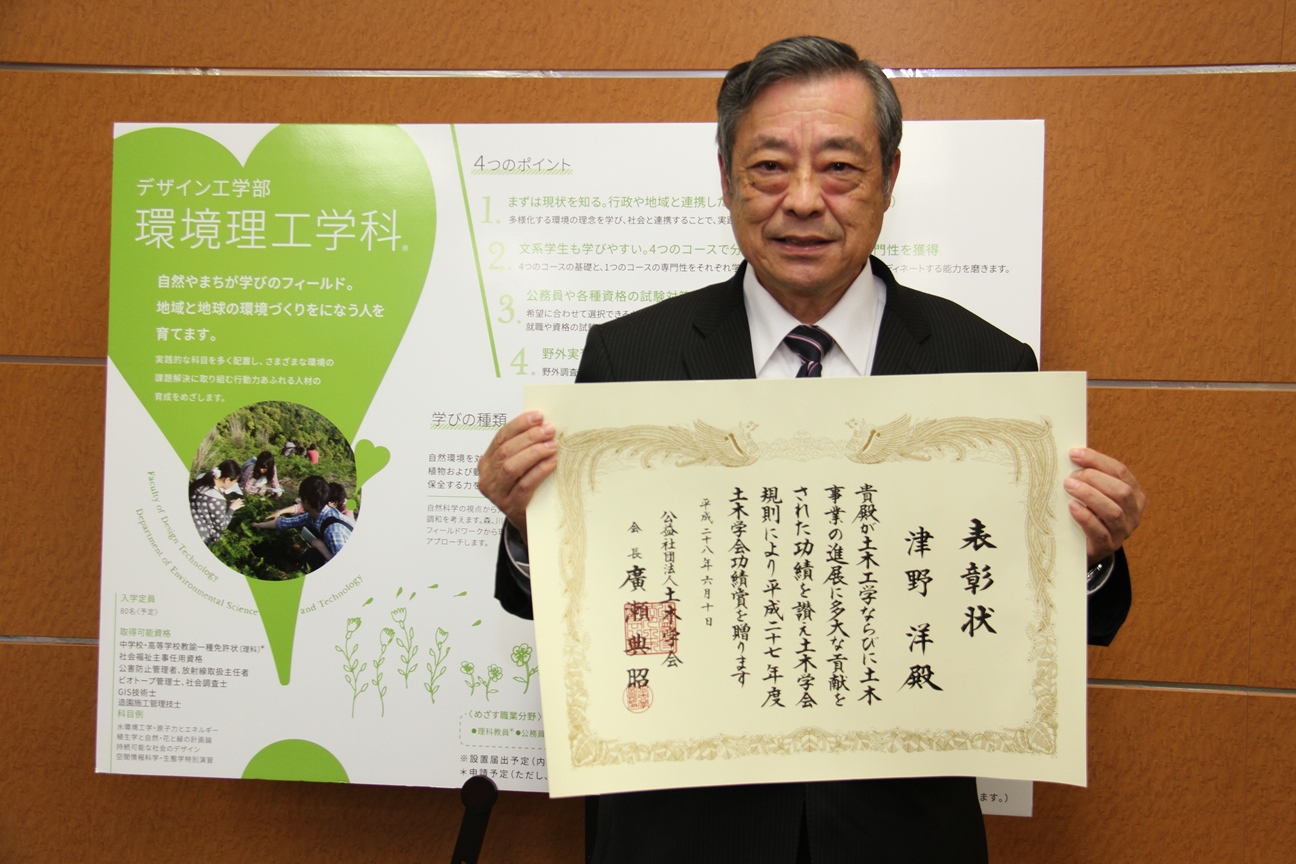 デザイン工学部
環境理工学科®
自然やまちが学びのフィールド。
地域と地球の環境づくりをになう人を
育てます。
実践的な科目を多く配置し、さまざまな環境の
課題解決に取り組む行動力あふれる人材の
育成をめざします。
Faculty of Design Technology
Department of Environmental Science and Technology
入学定員
80名〈予定〉
取得可能資格
中学校・高等学校教諭一種免許状(理科)*
社会福祉主事任用資格
公害防止管理者、放射線取扱主任者
ビオトープ管理士、社会調査士
GIS技術士
造園施工管理技士
科目例
水環境工学・原子力とエネルギー
植生学と自然・花と緑の計画論
持続可能な社会のデザイン
空間情報科学・生態学特別演習
4つのポイント
1. まずは現状を知る。行政や地域と連携した
多様化する環境の理念を学び、社会と連携することで、実
2. 文系学生も学びやすい。4つのコースで分 門性を獲得
4つのコースの基礎と、1つのコースの専門性をそれぞれ学 ディネートする能力を磨きます。
3. 公務員や各種資格の試験対策
希望に合わせて選択できる
就職や資格の試験
4. 野外実
野外調査
学びの種類
自然環境を
植物および
保全する力を
自然科学の視点から
調和を考えます。森、川
フィールドワークから
アプローチします。
〈めざす職業分野〉
●理科教員*●公務員
※設置届出予定(内
*申請予定(ただし、
ます。)
表彰状
津野 洋殿
貴殿が土木工学ならびに土木
事業の進展に多大な貢献を
された功績を讃え土木学会
規則により平成二十七年度
土木学会功績賞を贈ります
平成二十八年六月十日
公益社団法人土木学会
会長 廣瀬典昭